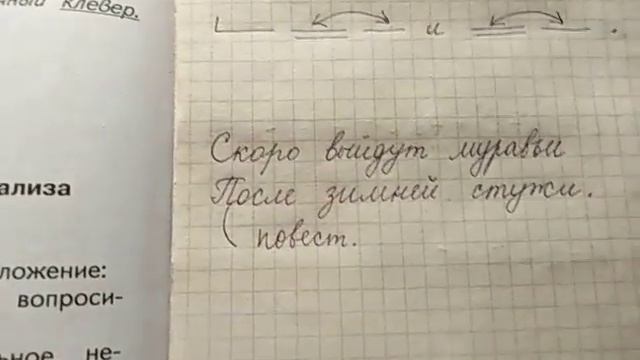 клевер.
и .
Скоро выйдут муравьи
После зимней стужи.
( повест.
ализа
ложение:
вопроси-
ьное не-